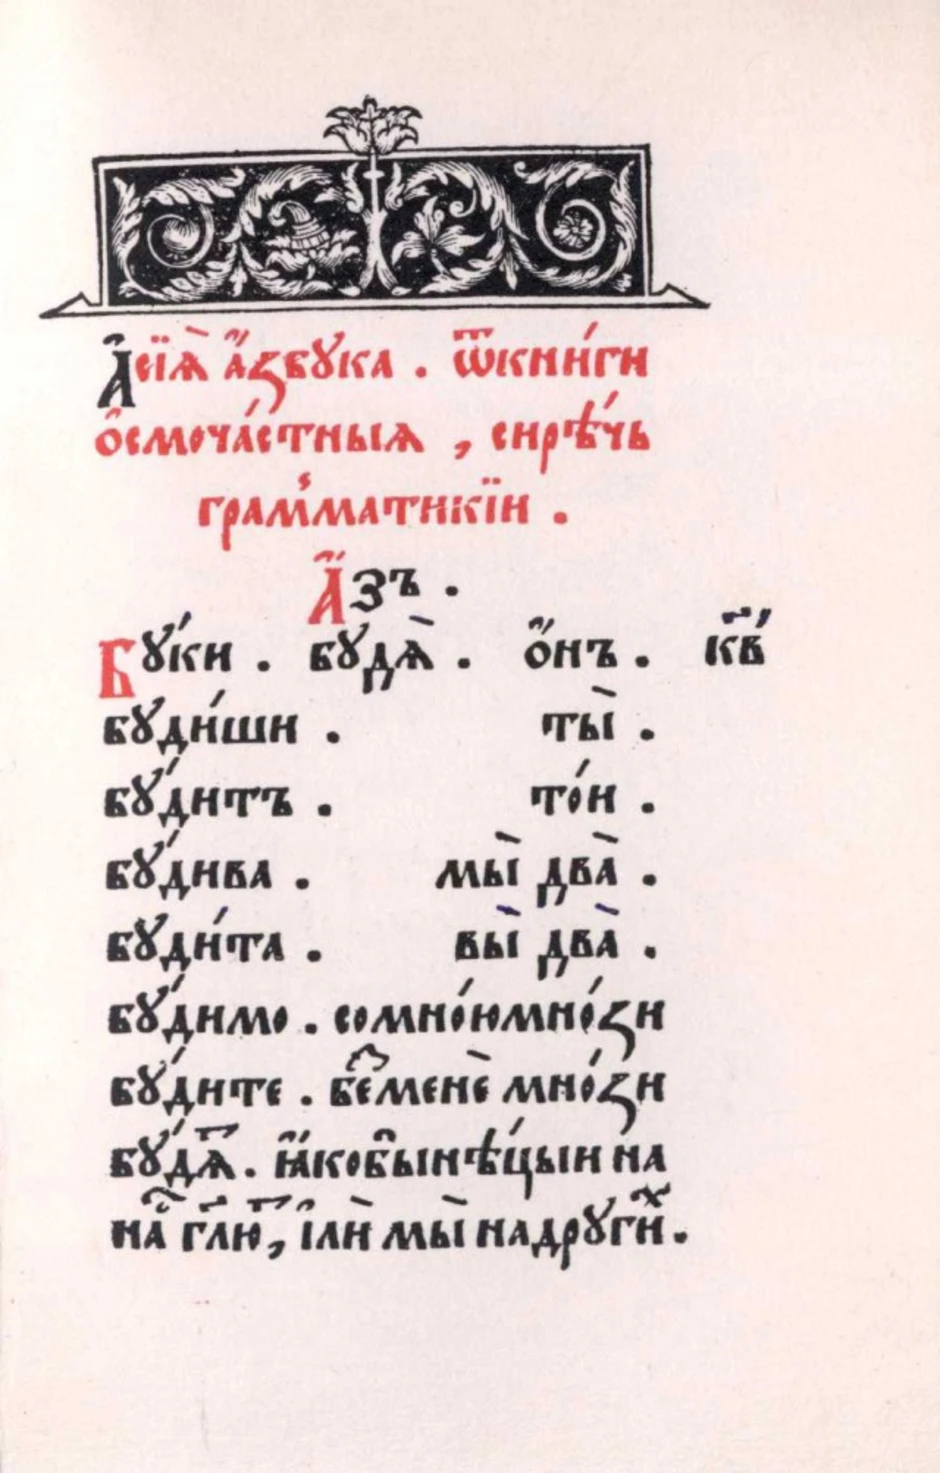 А҆сїѧ̀ а҆́збꙋка . ѿкни́ги
о҆смоча́стныѧ , сирѣ́чь
грам҆матикїи .
А҆́зъ .
Бꙋ́ки . бꙋдѧ̀ . ѻ҆́нъ . к҃в
бꙋди́ши . ты̀ .
бꙋ́дитъ . то́и .
бꙋ́дива . мы̀ два̀ .
бꙋди́та . вы̀ два̀ .
бꙋ́димо . сомно́юмно́ꙁи
бꙋ́дите . беꙁ̾менѐ мно́ꙁи
бꙋ́дѧⷮ . ꙗ҆́кобынѣ́цыи на
наⷭ҇ гл҃юⷮ , і҆лѝ мы̀ надрꙋгиⷯ .